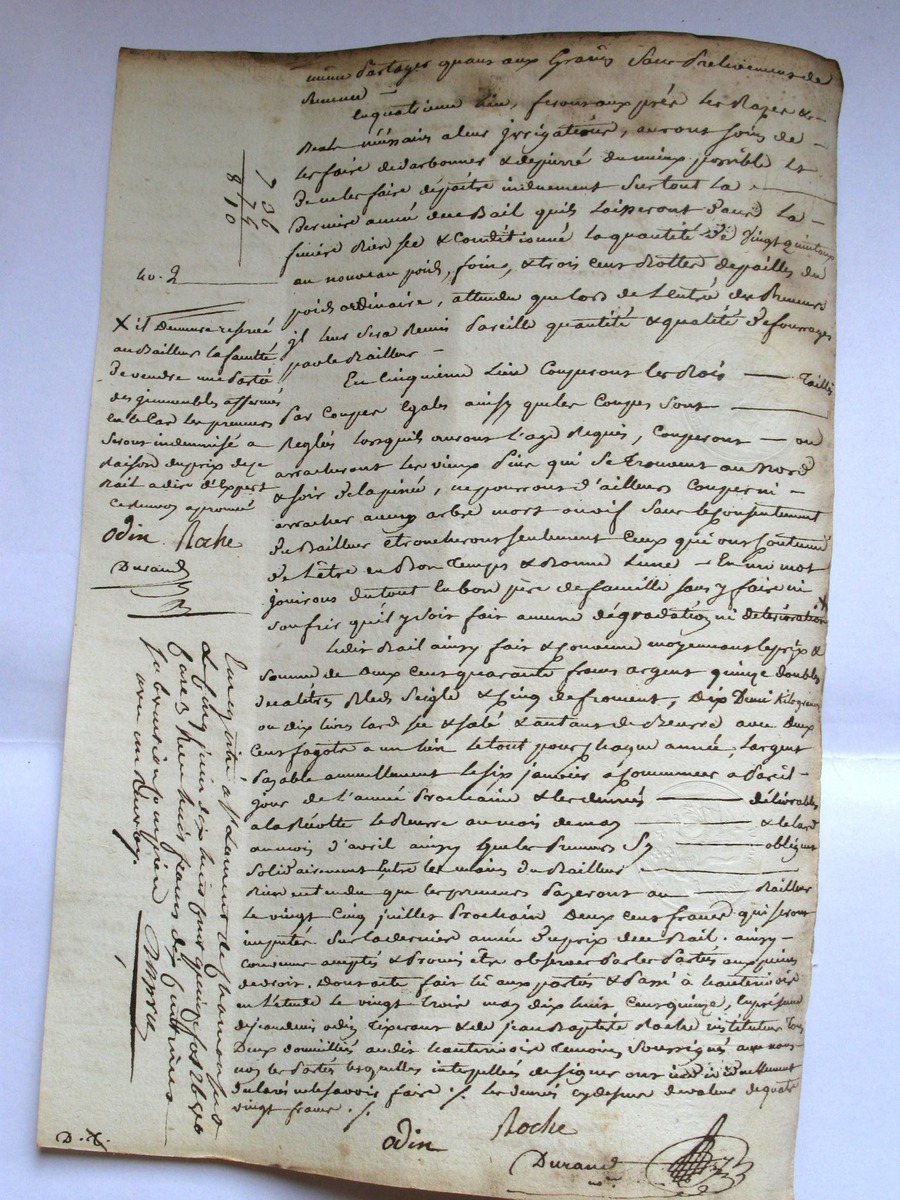 même Partages quant aux Grains Sans Prélèvement de
Semence —
En quatrieme Lieu, feront aux prés les Razes &
Béals nécéssaires a leur jrrigations, auront soins de
les faire & depierré du mieux possible et
De ne les faire dépaitre induement Surtout La
Derniere année du Bail quils Laisseront dans La
feniere Bien sec & Conditionné La quantité de vingt quintaux
au nouveau poids, foins, & trois cent Bottes de pailles du
poids ordinaire, attendu que lors de L'entrée des Preneurs
jl leur Sera Remis Pareille quantité & qualité de fourrages
par le Bailleur —
En Cinquieme Lieu Couperont les Bois — Taillis
Par Coupes Egales ainsy que les Coupes Sont
Reglés Lorsquils auront L'age Requis, Couperont — ou
arracheront les vieux Pins qui Se trouvent au Nord
& soir de la piné, ne pourront d'ailleurs Couper ni —
arracher aucuns arbre mort ou vif Sans le Consentement
du Bailleur Etroncheront seulement Ceux qui ont Coutume
de L'être en Bon Temps & Bonne Lune — En un mot
jouirons du tout en bon père de famille sans y faire ni
soufrir qu'il y soit fait aucune dégradation ni déterioration X
Ledit Bail ainsy fait & Convenu moyennant le prix &
Somme de Deux Cent quarante francs argent quinze doubles
décalitres Bled Seigle & Cinq de froment, Dix Demi Kilogrames
ou dix livres lard sec & salé & autant de Beurre avec Deux
Cent fagots a un lien le tout pour Chaque année, L'argent
Payable annuellement le six janvier a Commencer a Pareil —
jour de L'année Prochaine & les denrées — délivrables
a la Récolte le Beurre au mois de may — & le lard
au mois d'avril ainsy que les Preneurs Sy — obligent
Solidairement Entre les mains du Bailleur
Bien entendu que les preneurs Payeront au — Bailleur
Le vingt Cinq juillet Prochain Deux cent francs qui seront
imputés Sur la derniere année du prix du Bail. ainsy —
Convenu accepté & Promis être observé Par les Parties aux peines
de droit. Dont acte fait lû aux parties & Passé à
en L'étude le vingt trois may dix huit Cent quinze, En présence
de odin & de jean Baptiste Roche instituteur Tous
Deux domiciliés audit Temoins Soussignés avec nous —
non les Parties lesquelles interpellées de signer ont
déclaré ne le savoir faire ./. les denrées cy dessus de valeur de quatre
vingt francs ./.
odin Roche
Durand
736
74
810
no. 2
X il Demeure réservé
au Bailleur la faculté
De vendre une Partie
des jmmeubles affermés
en ce Cas les preneurs
Seront indemnisé a
Raison du prix de ce
Bail a dire d'Expert
ce Renvoi approuvé
odin Roche
Durand
Enregistré à St
Le Cinq juin dix huit cent quinze
 huit francs dix centimes
subvention comprise

D. X.